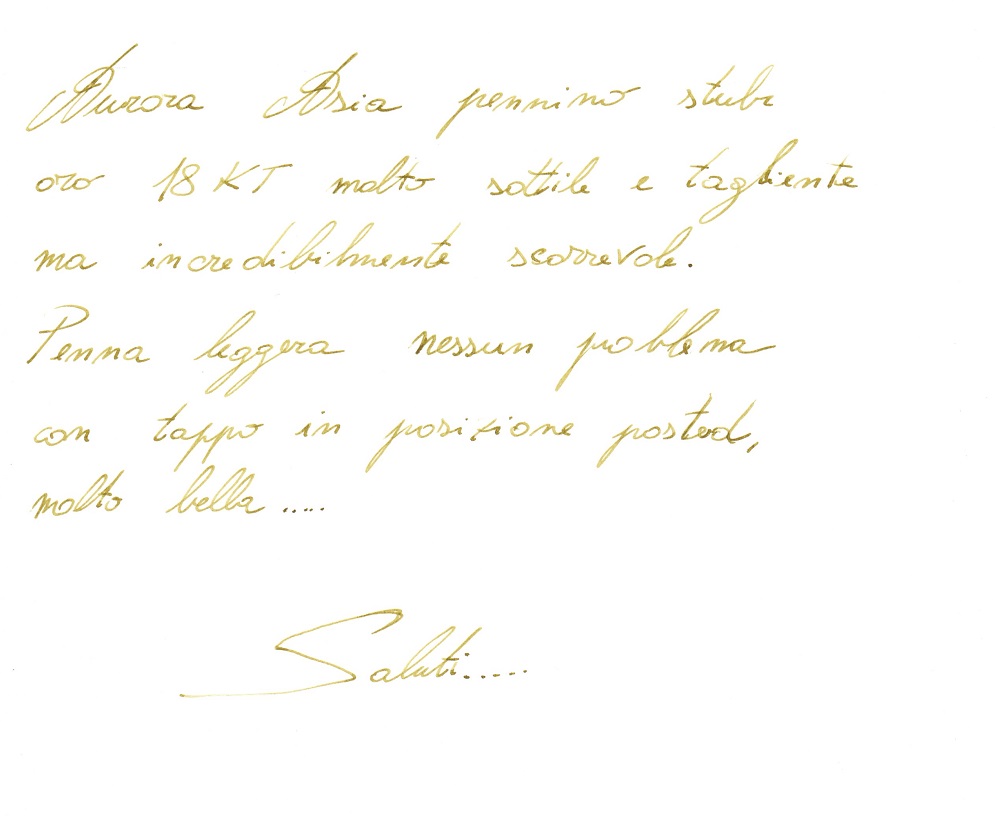 Aurora Asia pennino stub
oro 18 KT molto sottile e tagliente
ma incredibilmente scorrevole.
Penna leggera nessun problema
con tappo in posizione posted,
molto bella .....
Saluti.....